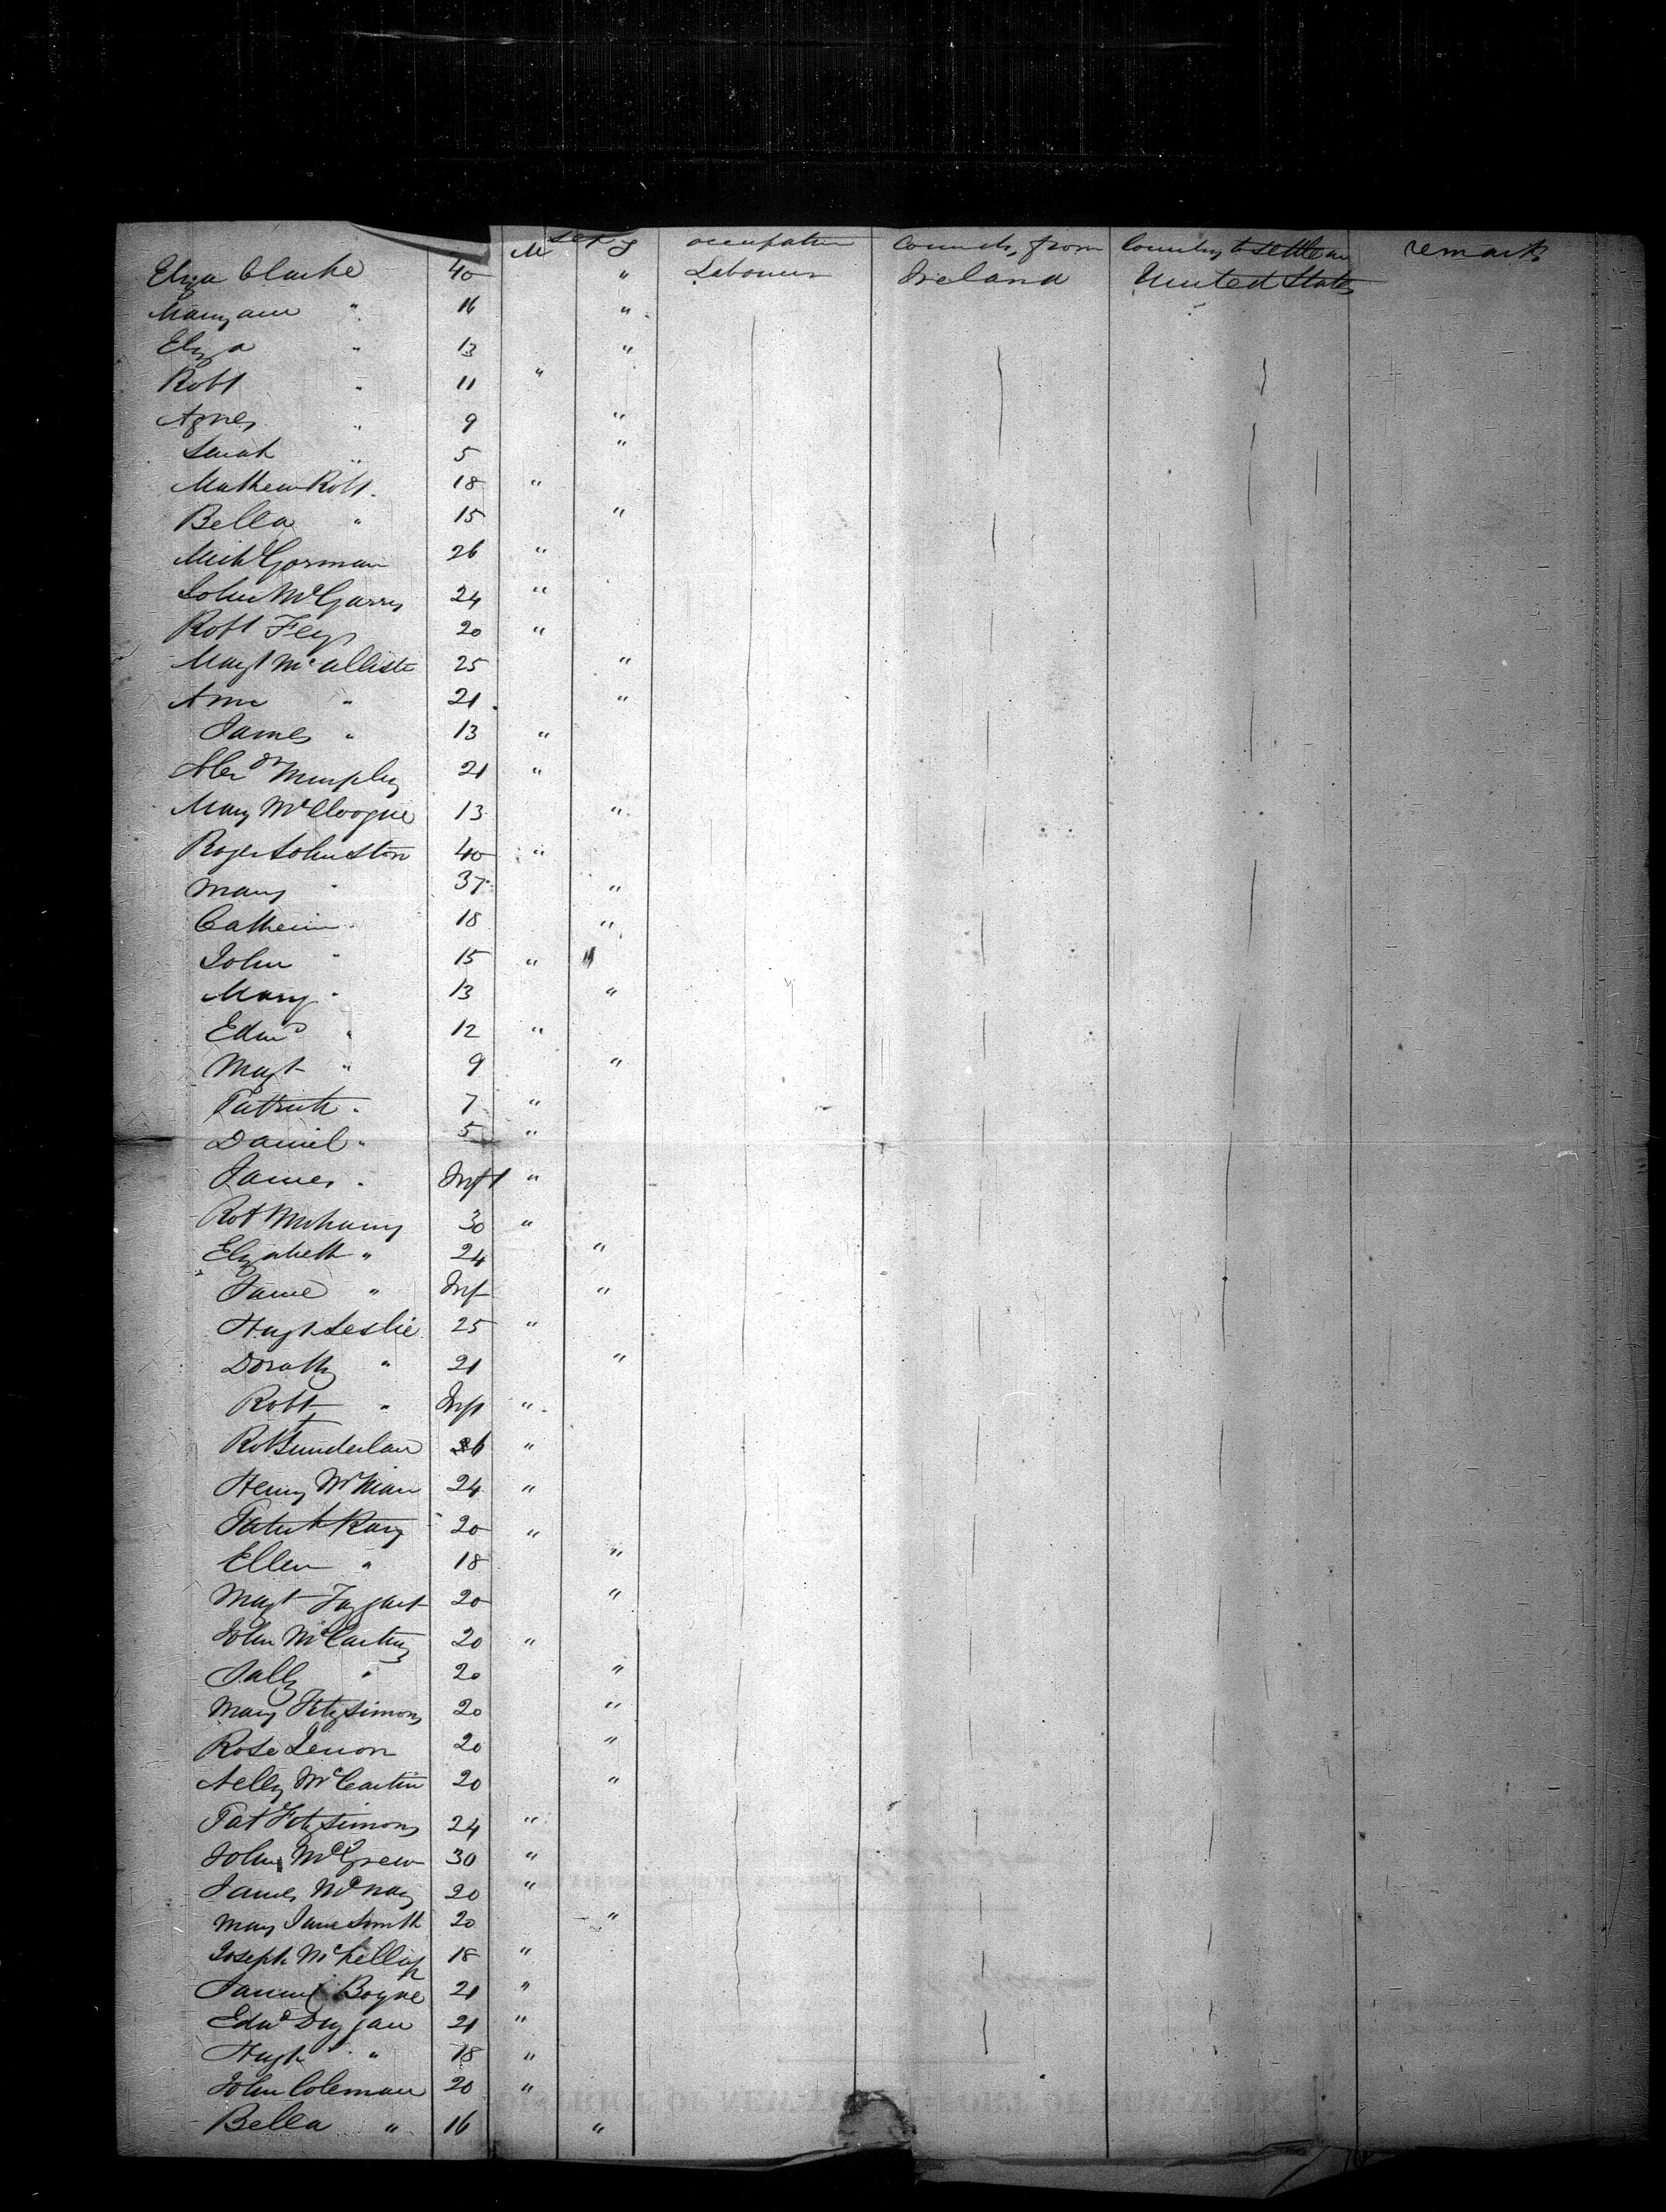 M sex F occupation Country from Country to settle in remarks
Eliza Clarke 40 " Labourer Ireland United States
Maryann " 16 "
Eliza " 13 "
Robt " 11 "
Agnes " 9 "
Sarah " 5 "
Mathew Robt 18 "
Bella " 15 "
Michl Gorman 26 "
John McGarry 24 "
Robt Feys 20 "
Margt McAlliste 25 "
Ann " 21 "
James " 13 "
Alexdr Murphy 21 "
Mary McCloogue 13 "
Roger Johnston 40 "
Mary " 37 "
Catherin " 18 "
John " 15 "
Mary " 13 "
Edwd " 12 "
Margt " 9 "
Patrick " 7 "
Daniel " 5 "
James " Inft "
Rot 30 "
Elizabeth " 24 "
Jane " Inf "
Hugh Leslie 25 "
Doratty " 21 "
Robt " Inft "
Robt Sunderlan 26 "
Henry 24 "
Patrick Rary 20 "
Ellen " 18 "
Margt Taggart 20 "
John McCartny 20 "
Sally " 20 "
Mary Fitzsimons 20 "
Rose Lenon 20 "
Nelly McCartin 20 "
Pat Fitzsimons 24 "
John McGrew 30 "
James McNay 20 "
Mary Jane Smith 20 "
Joseph McKellip 18 "
Samuel Bogue 21 "
Edwd Duggan 21 "
Hugh " 18 "
John Coleman 20 "
Bella " 16 "